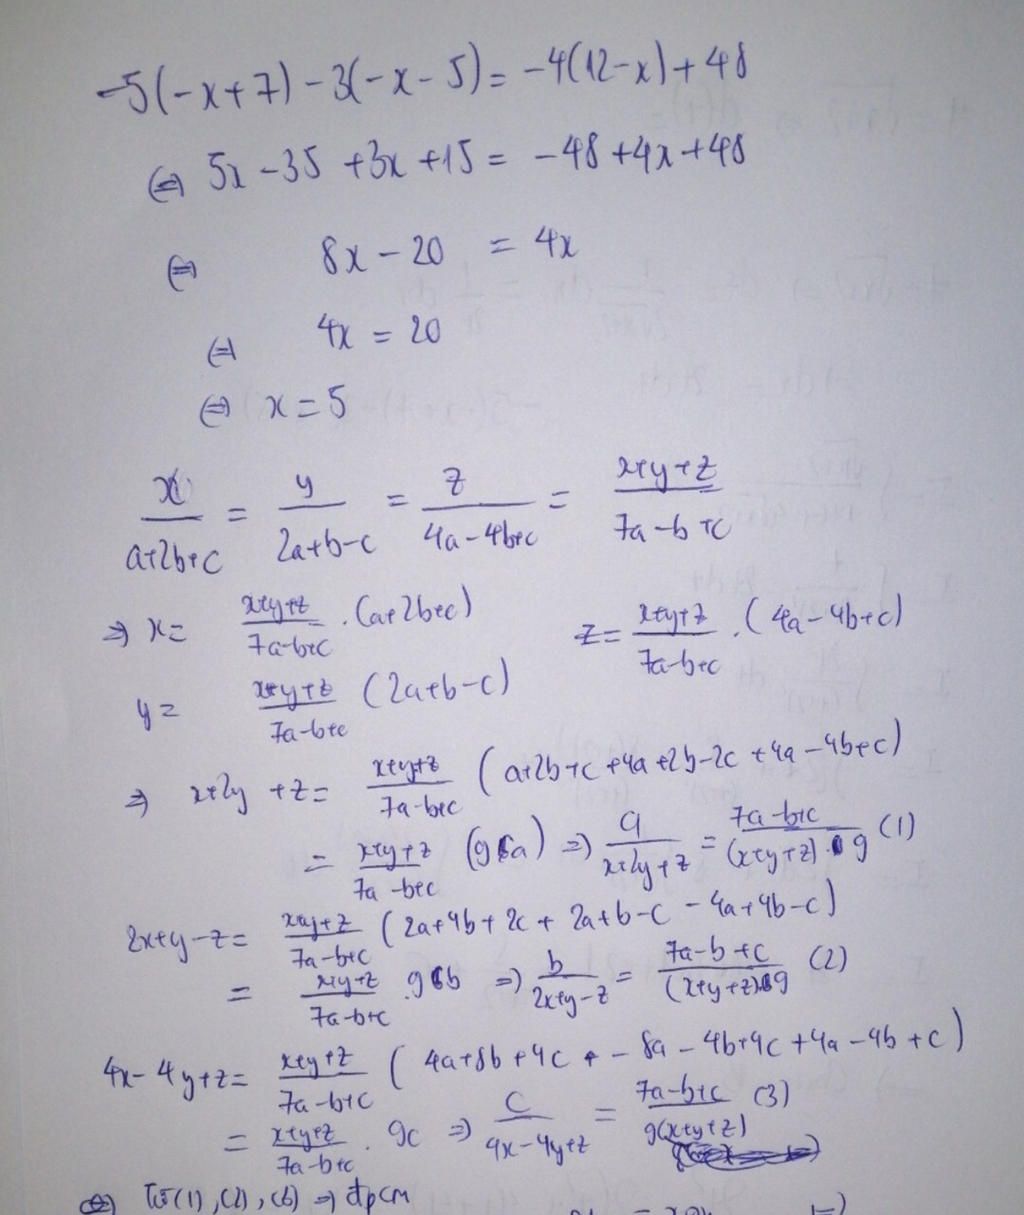 -5(-x+7)-3(-x-5)=-4(12-x)+48
⇔ 5x-35+3x+15=-48+4x+48
⇔ 8x-20 = 4x
⇔ 4x = 20
⇔ x=5
x/(a+2b+c) = y/(2a+b-c) = z/(4a-4b+c) = (x+y+z)/(7a-b+c)
⇒ x= (x+y+z)/(7a-b+c) . (a+2b+c) z= (x+y+z)/(7a-b+c) . (4a-4b+c)
y= (x+y+z)/(7a-b+c) (2a+b-c)
⇒ x+2y+z= (x+y+z)/(7a-b+c) (a+2b+c+4a+2b-2c+4a-4b+c)
= (x+y+z)/(7a-b+c) (9a) ⇒ a/(x+2y+z) = (7a-b+c)/((x+y+z).9) (1)
2x+y-z= (x+y+z)/(7a-b+c) (2a+4b+2c+2a+b-c-4a+4b-c)
= (x+y+z)/(7a-b+c) .9b ⇒ b/(2x+y-z) = (7a-b+c)/((x+y+z).9) (2)
4x-4y+z= (x+y+z)/(7a-b+c) (4a+8b+4c - 8a-4b+4c+4a-4b+c)
= (x+y+z)/(7a-b+c) . 9c ⇒ c/(4x-4y+z) = (7a-b+c)/(9(x+y+z)) (3)
⇔ Từ (1),(2),(3) ⇒ đpcm